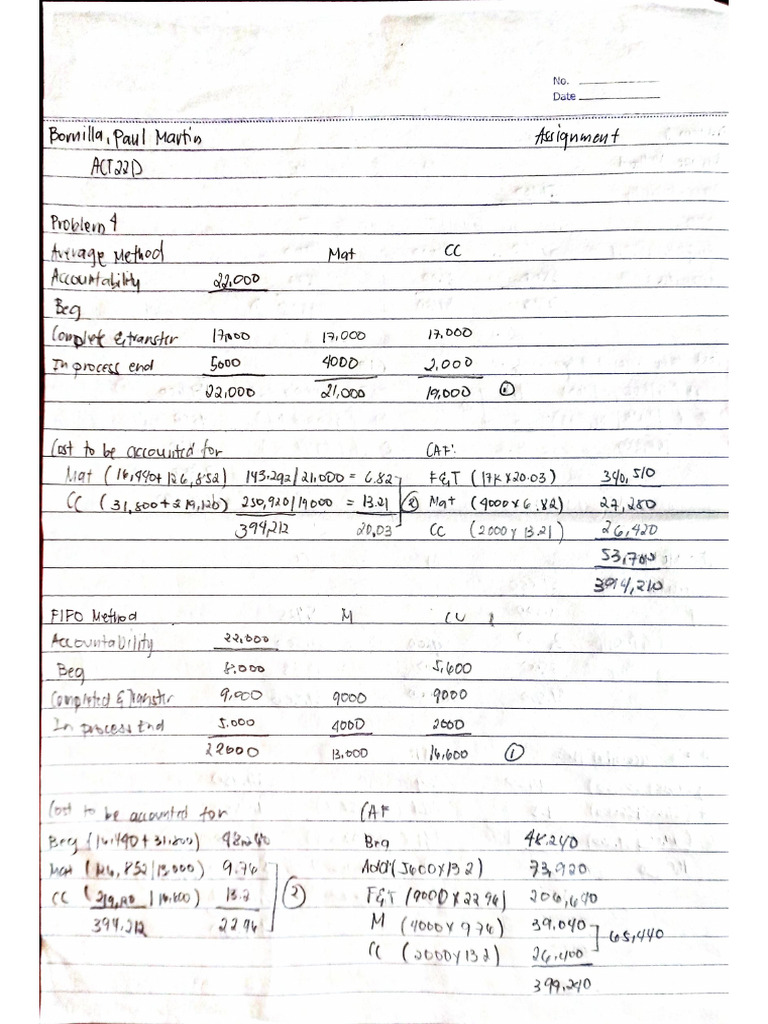 No.
Date
Bornilla, Paul Martin Assignment
ACT22D
Problem 4
Average Method Mat CC
Accountability 22,000
Beg
Complete & transfer 17,000 17,000 17,000
In process end 5000 4000 2,000
22,000 21,000 19,000 ①
Cost to be accounted for CAF:
Mat (16,440+126,852) 143,292/21,000 = 6.82 F&T (17K x 20.03) 340,510
CC (31,800+219,120) 250,920/19000 = 13.21 ② Mat (4000 x 6.82) 27,280
394,212 20,03 CC (2000 x 13.21) 26,420
53,700
394,210
FIFO Method M
Accountability 22,000
Beg 8,000 5,600
Completed & Transfer 9,000 9000 9000
In process End 5,000 4000 2000
22000 13,000 16,600 ①
Cost to be accounted for CAF
Beg (16,440+31,800) 48,240 Beg 48,240
Mat (126,852/13,000) 9.76 Add'l (5600 x 13.2) 73,920
CC (219,120/16,600) 13.2 ② F&T (9000 x 22.96) 206,640
394,212 22.96 M (4000 x 9.76) 39,040
CC (2000 x 13.2) 26,400 65,440
399,240